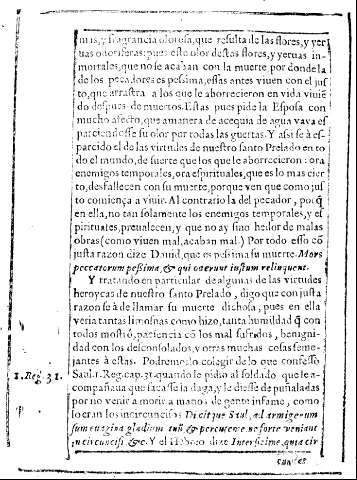 mas, y fragrancia olorosa, que resulta de las flores, y yer
uas odoriferas: pues este olor destas flores, y yeruas in-
mortales, que no se acaban con la muerte por donde la
de los pecadores es pessima, estas antes viuen con el jus
to, que arrastra a los que le aborrecieron en vida viuiē
do despues de muertos. Estas pues pide la Esposa con
mucho afecto, que a manera de acequia de agua vaya es
parciendosse su olor por todas las guertas. Y assi se à es-
parcido el de las virtudes de nuestro santo Prelado en to
do el mundo, de suerte que los que le aborrecieron: ora
enemigos temporales, ora espirituales, que es lo mas cier
to, desfallecen con su muerte, porque ven que como jus
to comiença a viuir. Al contrario la del pecador, por q̄
en ella, no tan solamente los enemigos temporales, y es
pirituales, preualecen, y que no ay sino hedor de malas
obras (como viuen mal, acaban mal.) Por todo esso cō
justa razon dize Dauid, que es pessima su muerte. Mors
peccatorum pessima, & qui oderunt iustum relinquent.
Y tratando en particular de algunas de las virtudes
heroycas de nuestro santo Prelado, digo que con justa
razon se à de llamar su muerte dichosa, pues en ella
veria tantas limosnas como hizo, tanta humildad q̄ con
todos mostrò, paciencia cō los mal sufridos, benigni-
dad con los desconsolados, y otras muchas cosas seme-
jantes à estas. Podremoslo colegir de lo que confessò
1. Reg. 31. Saul. 1. Reg. cap. 31. quando le pidio al soldado que le a-
compañaua que sacasse la daga, y le diesse de puñaladas
por no venir a morir a manos de gente infame, como
lo eran los incircuncisos Dicitque Saul, ad armigerum
suum euagina gladium tuū & percute me ne forte veniant
incircuncisi &c. Y el Hebreo dize Interficime, quia cir
cundes